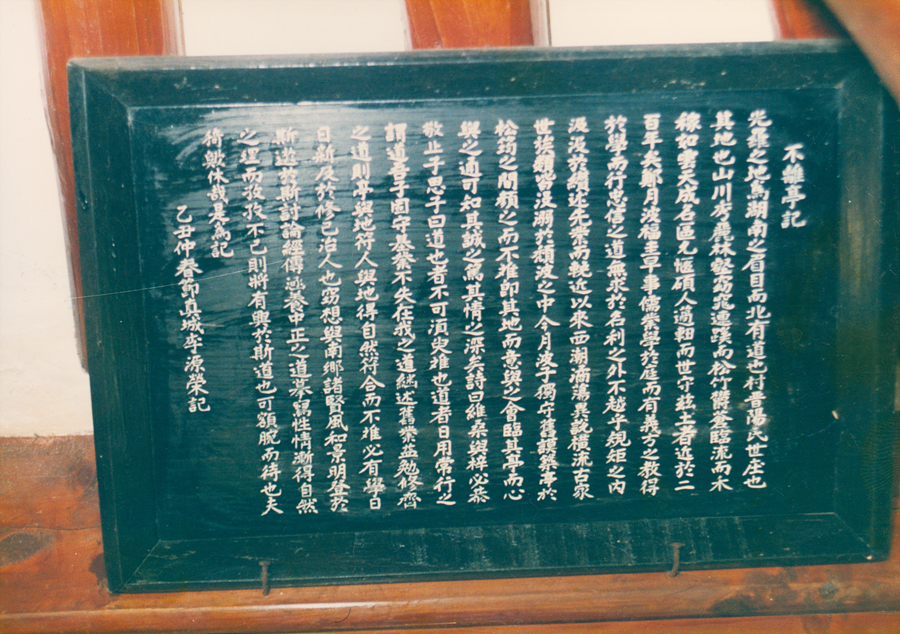 不離亭記
光羅之地爲湖南之眉目而北有道也村晋陽氏世庄也
其地也山川秀麗林壑窈窕連蹊而松竹鬱蒼臨流而禾
稼如雲天成名區尤愜碩人薖軸而世守玆土者近於二
百年矣鄭月波福圭早事儒業學於庭而有義方之教得
於學而行忠信之道無求於名利之外不越乎規矩之內
汲汲於績述先業而輓近以來西潮漭蕩異說橫流古家
世族類皆浸溺於頹波之中今月波子獨守舊謨築亭於
松筠之間額之而不離卽其地而意與之會臨其亭而心
與之適可知其誠之篤其情之深矣詩曰維桑與梓必恭
敬止子思子曰道也者不可須臾離也道者日用常行之
謂道吾子固守基不失在我之道繼述舊業益勉修齊
之道則亭與地符人與地得自然符合而不離必有學日
日新及於修己治人也想與南鄉諸賢風和景明登於
斯遊於斯討論經傳涵養中正之道摹寫性情漸得自然
之理而孜孜不已則將有興於斯道也可額腕而待也夫
猗歟休哉是爲記
乙丑仲春節眞城李源榮記